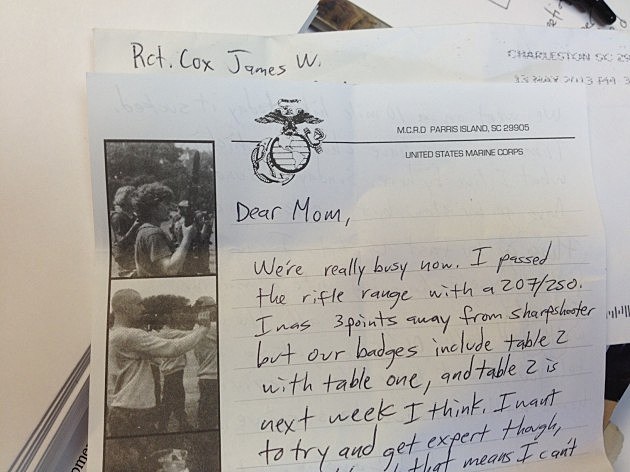 Rct. Cox James W.
CHARLESTON SC 29
13 MAY 2013 PM 3
M.C.R.D PARRIS ISLAND, SC 29905
UNITED STATES MARINE CORPS
Dear Mom,
We're really busy now. I passed
the rifle range with a 207/250.
I was 3 points away from sharpshooter
but our badges include table 2
with table one, and table 2 is
next week I think. I want
to try and get expert though,
that means I can't